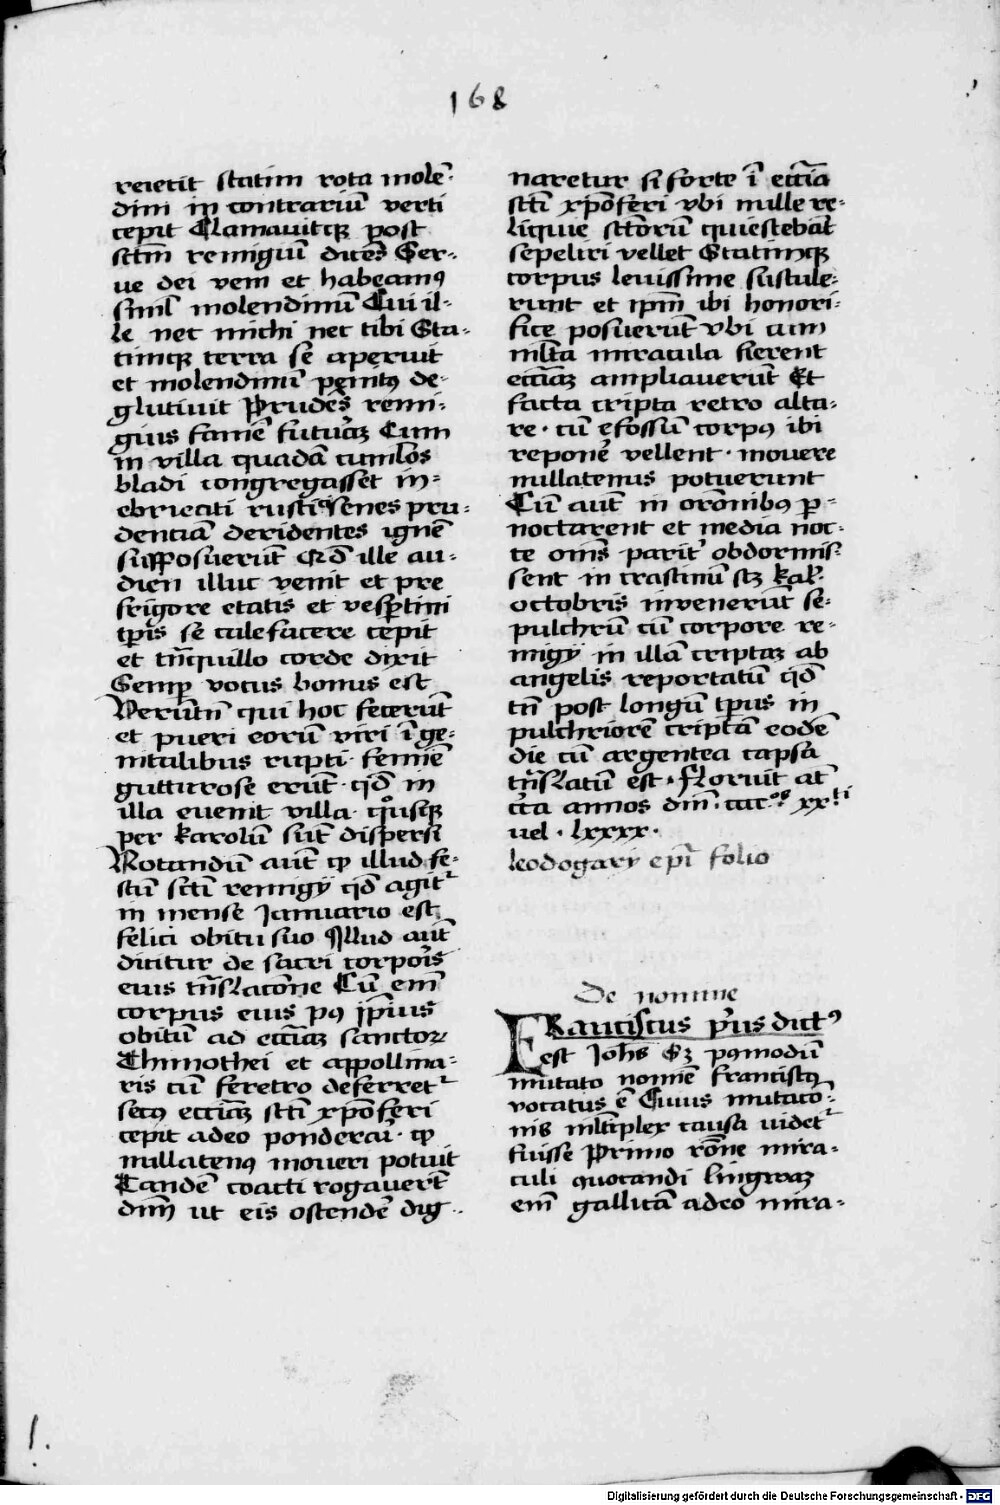 168
reiecit statim rota molē¬
dini in contrariū verti
cepit Clamauitqꝫ post
sctm̄ remigiū dicēs Ser-
ue dei veni et habeamꝰ
simĺ molendinū Cui il-
le nec michi nec tibi Sta-
timqꝫ terra se aperuit
et molendinū penitꝰ de-
glutiuit Prudēs remi-
gius famē futurāꝫ Cum
in villa quadā cumlōs
bladi congregasset in-
ebriati rustici senes pru-
dentiā deridentes ignē
supposuerūt Qd̄ ille au-
dien illuc venit et pre
frigore etatis et vesptini
tpis se calefacere cepit
et tn̄quillo corde dixit
Semp̄ vocus bonus est
Verūtn̄ qui hoc fecerūt
et pueri eorū viri ī ge-
nitalibus rupti femīe
gutturose erūt qd̄ in
illa euenit villa quousqꝫ
per karolū sūt dispersi
Notandū aūt ꝙ illud fe-
stū scti remigij qd̄ agit᷑
in mense Januario est
felici obitu suo Illud aūt
dicitur de sacri corpoīs
eius trn̄slacōne Cū em̄
corpus eius pꝰ ipīus
obitū ad ecciāꝫ sanctoꝝ
Thimothei et appollina-
ris cū feretro deferret᷑
secꝰ ecciāꝫ scti xpōferi
cepit adeo ponderaī ꝙ
nullatenꝰ moueri potuit
Tandē coacti rogauerūt
dn̄m ut eis ostendē dig-
naretur si forte ī eccīa
scti xpōferi vbi mille re-
liquie sctorū quiescebāt
sepeliri vellet Statimqꝫ
corpus leuissime sustule-
runt et ipm̄ ibi honori-
fice posuerūt vbi cum
mĺta miracula fierent
ecciāꝫ ampliauerūt Et
facta cripta retro alta-
re cū effossum corpꝰ ibi
reponē vellent mouere
nullatenus potuerunt
Cū aūt in orōnibꝰ p̱-
noctarent et media noc-
te om̄s parit᷑ obdormis-
sent in crastinū scꝫ kal.
octobris inuenerūt se-
pulchrū cū corpore re-
migij in illā criptaꝫ ab
angelis reportatū qd̄
tn̄ post longū tpus in
pulchriorē criptā eodē
die cū argentea capsa
trn̄slatū est. floruit āt
c̄ca annos dn̄i cccc⁰ˢ xxᵗⁱ
uel . lxxxx.
leodogarij epī folio
De nomine
Franciscus pꝰus dictꝰ
est Johs Sꝫ pꝰmodū
mutato nomīe franciscꝰ
vocatus ē Cuius mutacō-
nis mĺtiplex causa uidet᷑
fuisse Primo rōne mira-
culi quotandi lingwaꝫ
em̄ gallicā adeo mira-
1.
Digitalisierung gefördert durch die Deutsche Forschungsgemeinschaft - DFG